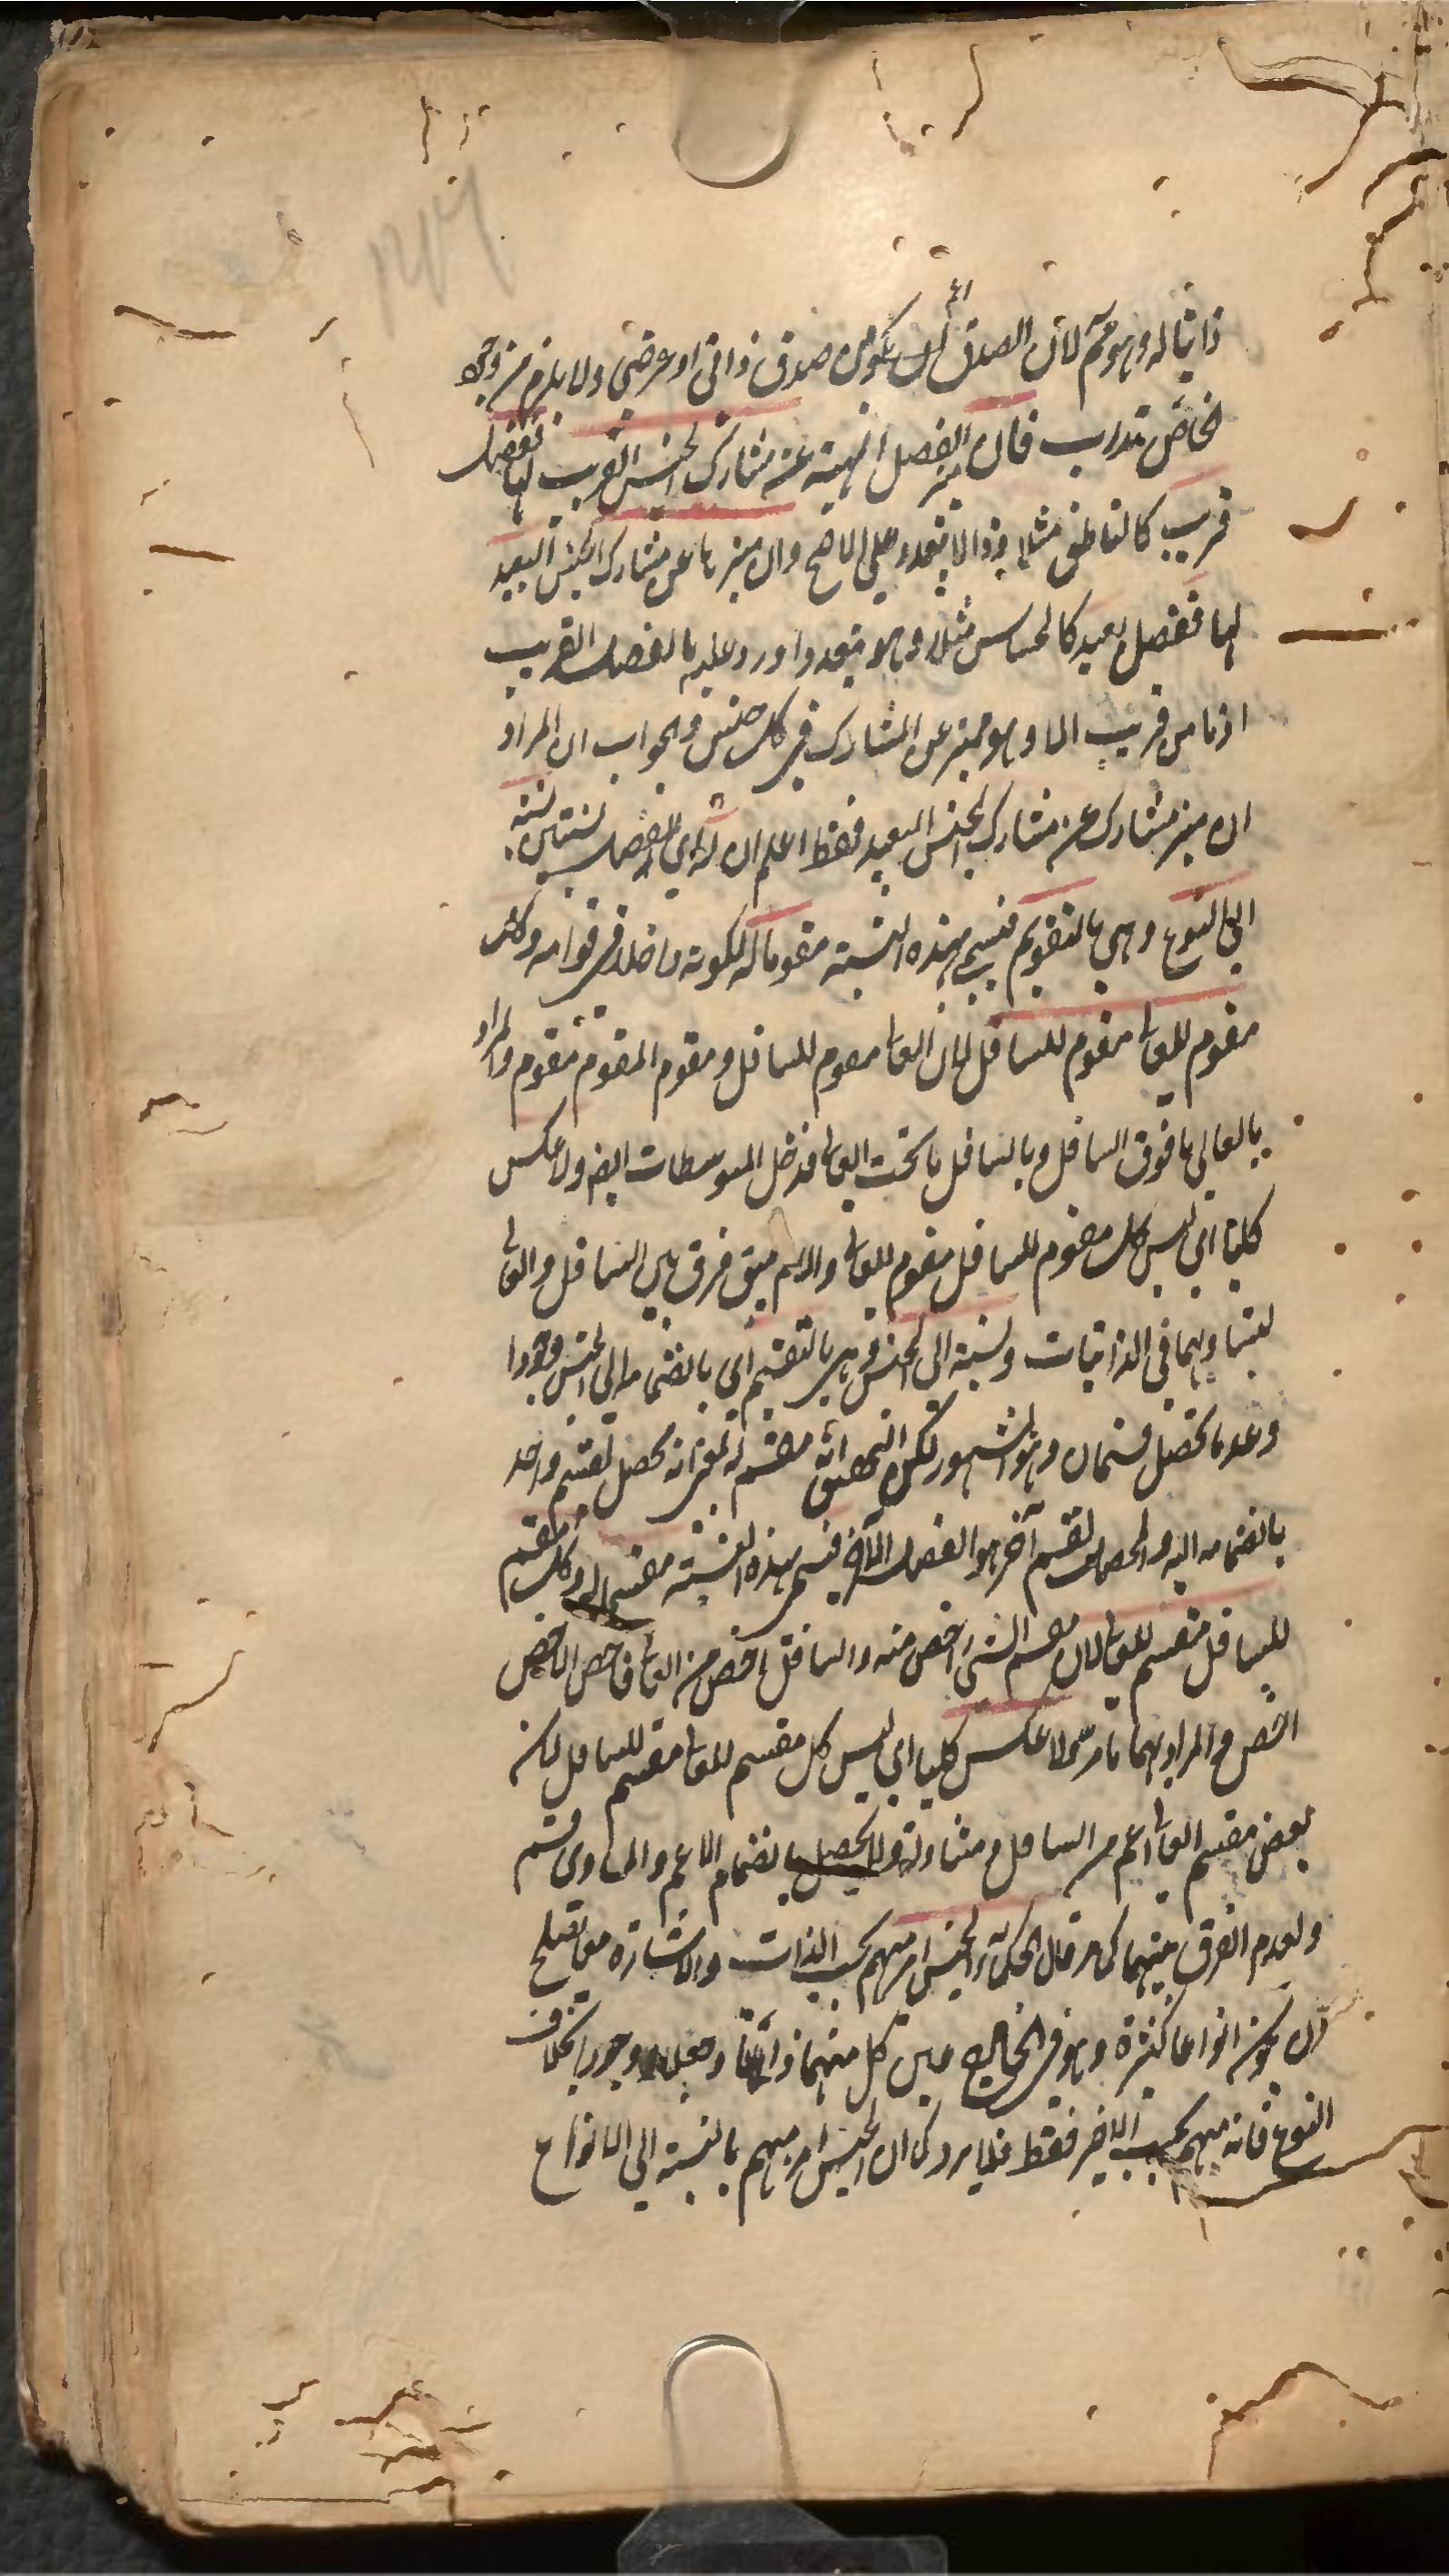 ذاتيا له وهو مم لأن الصدق اعم ان يكون صدق ذاتى او عرضى ولا يلزم من وجود
الخاص تدرب فان ميز الفصل المهية عن مشارك الجنس القريب لها ففصل
قريب كالناطق مثلا وذا لا يتعدد على الاصح وان ميزها عن مشارك الجنس البعيد
لها ففصل بعيد كالحساس مثلا وهو يتعدد واورد عليه بالفصل القريب
اذ ما من قريب الا وهو مميز عن المشارك فى كل جنس والجواب ان المراد
ان ميز مشارك عن مشارك الجنس البعيد فقط اعلم ان له اى للفصل نسبتين نسبة
الى النوع وهى بالتقويم فيسمى بهذه النسبة مقوما له لكونه داخلا فى قوامه وكل
مقوم للعالى مقوم للسافل لان العالى مقوم للسافل ومقوم المقوم مقوم والمراد
بالعالى ما فوق السافل وبالسافل ما تحت العالى فدخل المتوسطات ايضا ولا عكس
كليا اى ليس كل مقوم للسافل مقوم للعالى والا لم يبق فرق بين السافل والعالى
لتساويهما فى الذاتيات ونسبة الى الجنس وهى بالتقسيم اى بانضمامه الى الجنس وجودا
وعدما تحصل قسمان وهو المشهور لكن التحقيق انه مقسم له بمعنى انه يحصل تقسيم واحد
بانضمامه اليه والحصل لقسم آخر هو الفصل الآخر فيسمى بهذه النسبة مقسما له وكل مقسم
للسافل مقسم للعالى لان مقسم الشئ اخص منه والسافل اخص من العالى فاخص الاخص
اخص والمراد بهما ما مر ولا عكس كليا اى ليس كل مقسم للعالى مقسم للسافل لان
بعض مقسم العالى اعم من السافل ومساو له ولا يحصل بانضمام الاعم والمساوى قسم
ولعدم الفرق بينهما كما مر قال الحكماء الجنس امر مبهم بحسب الذات والاشارة معا يصلح
ان يكون انواعا كثيرة وهو فى الخارج عين كل منهما ذاتا وجعلا ووجودا بخلاف
النوع فانه مبهم بحسب الاخير فقط فلا يرد كما ان الجنس امر مبهم بالنسبة الى الانواع